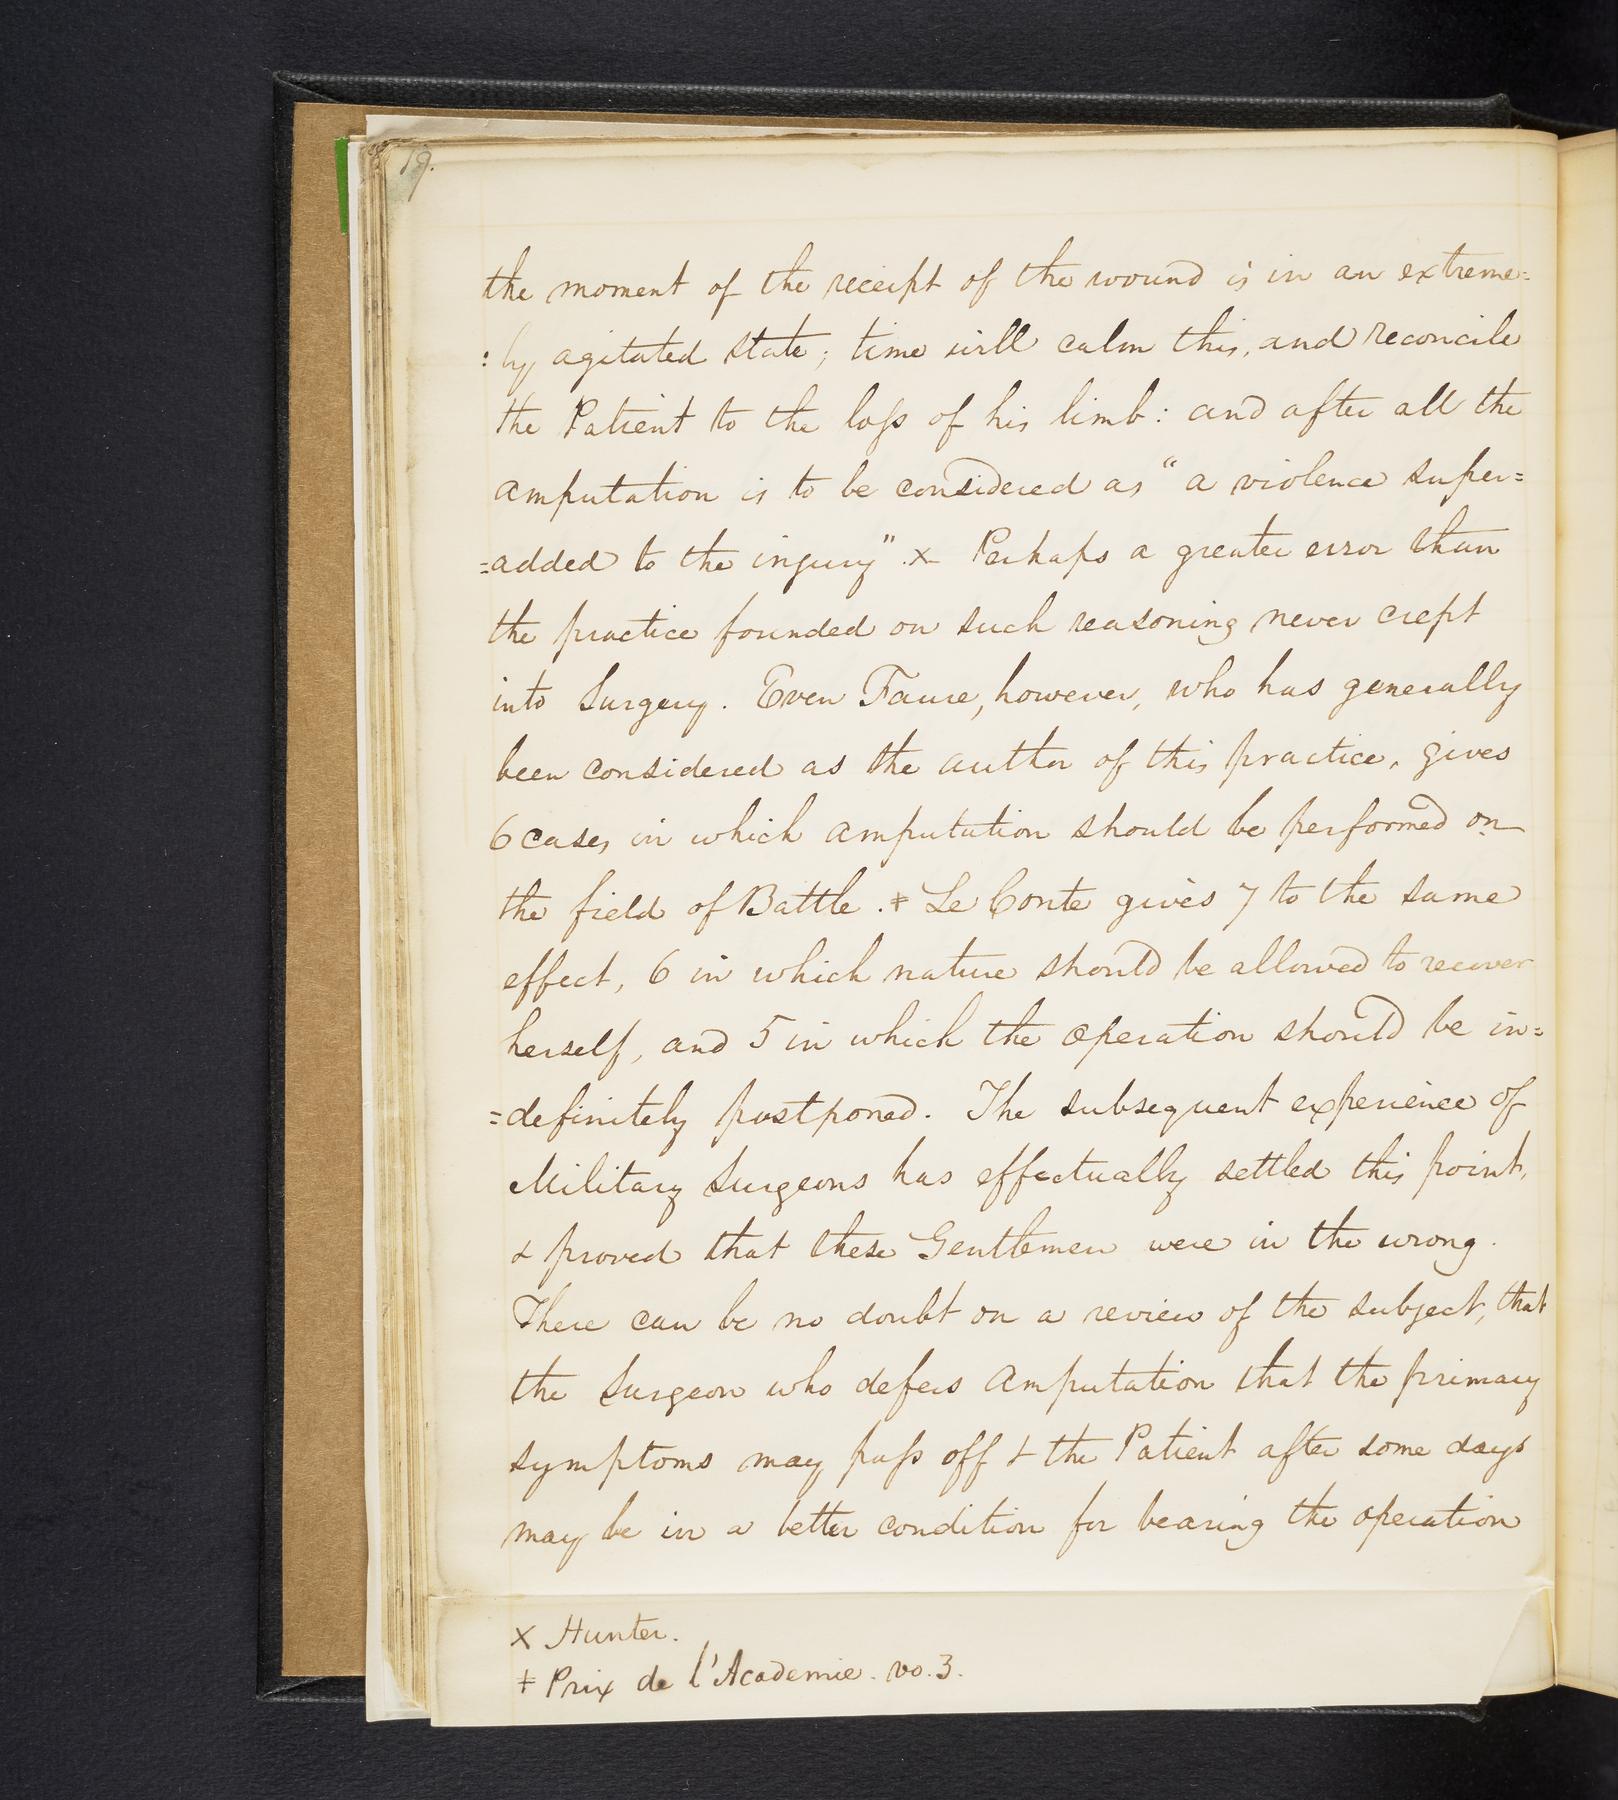 19.
the moment of the receipt of the wound is in an extreme=
:ly agitated state; time will calm this, and reconcile
the Patient to the loſs of his limb: and after all the
amputation is to be considered as "a violence super=
=added to the injury". x Perhaps a greater error than
the practice founded on such reasoning never crept
into Surgery. Even Faure, however, who has generally
been considered as the author of this practice, gives
6 cases in which amputation should be performed on
the field of Battle. ǂ Le Conte gives 7 to the same
effect, 6 in which nature should be allowed to recover
herself, and 5 in which the operation should be in=
=definitely postponed. The subsequent experience of
Military Surgeons has effectually settled this point,
& proved that these Gentlemen were in the wrong.
There can be no doubt on a review of the subject, that
the Surgeon who defers amputation that the primary
symptoms may paſs off & the Patient after some days
may be in a better condition for bearing the operation
x Hunter.
ǂ Prix de l'Academie. vo. 3.